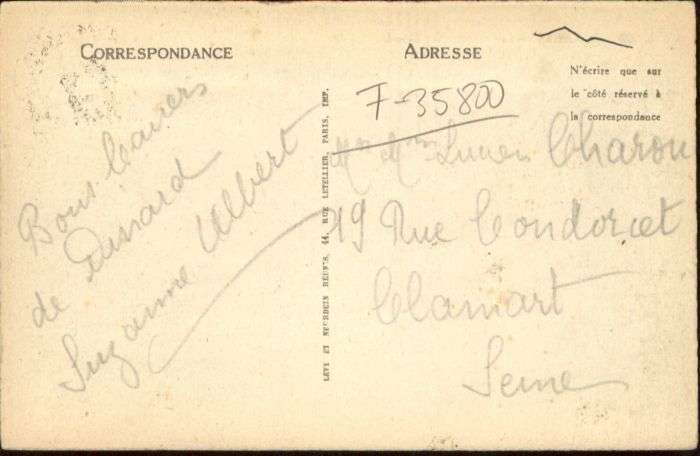 CORRESPONDANCE
ADRESSE
N'écrire que sur
le côté réservé à
la correspondance
F-35800
Bons baisers
de Dinard
Suzanne Albert
LEVY ET NEURDEIN RÉUNIS, 44, RUE LETELLIER, PARIS, IMP.
Mr Mme Lucien Charon
19 Rue Condorcet
Clamart
Seine